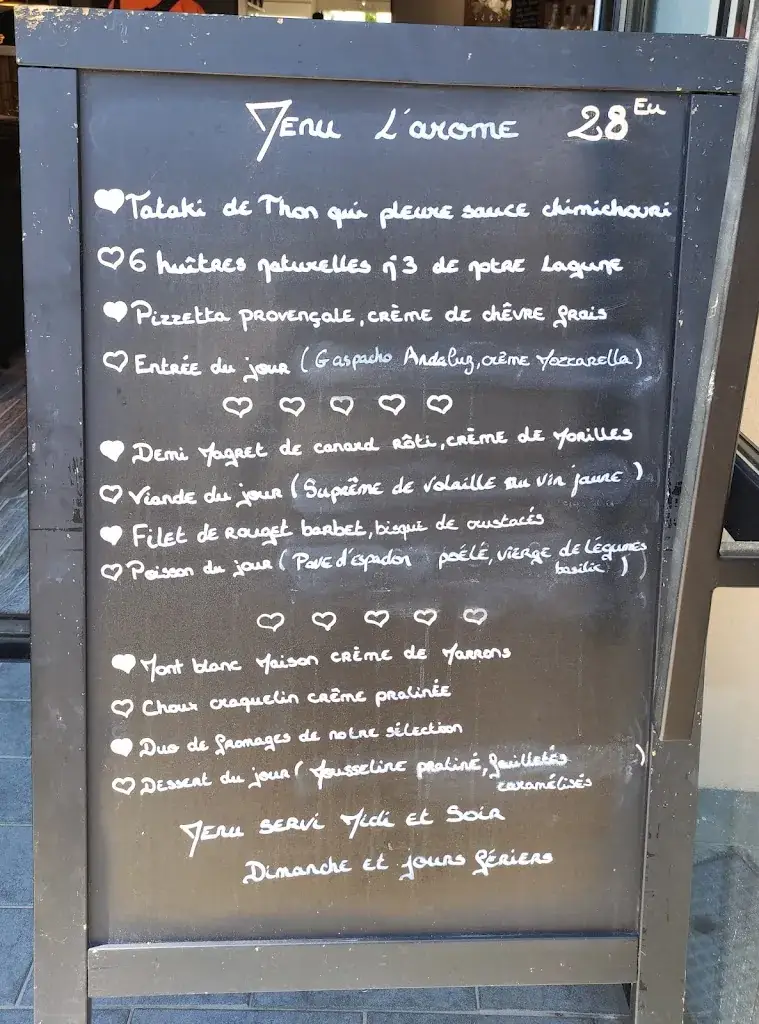 Menu L'arome 28 Eu
Tataki de Thon qui pleure sauce chimichouri
6 huîtres naturelles n°3 de notre Lagune
Pizzetta provençale, crème de chêvre frais
Entrée du jour (Gaspacho Andaluz, crème Mozzarella)
Demi Magret de canard rôti, crème de Morilles
Viande du jour (Suprême de volaille au vin jaune)
Filet de rouget barbet, bisque de crustacés
Poisson du jour (Pavé d'espadon poêlé, vierge de légumes
basilic)
Mont blanc Maison crème de Marrons
Choux craquelin crème pralinée
Duo de fromages de notre sélection
Dessert du jour (Mousseline praliné, feuilletés
caramélisés)
Menu servi Midi et Soir
Dimanche et jours fériers